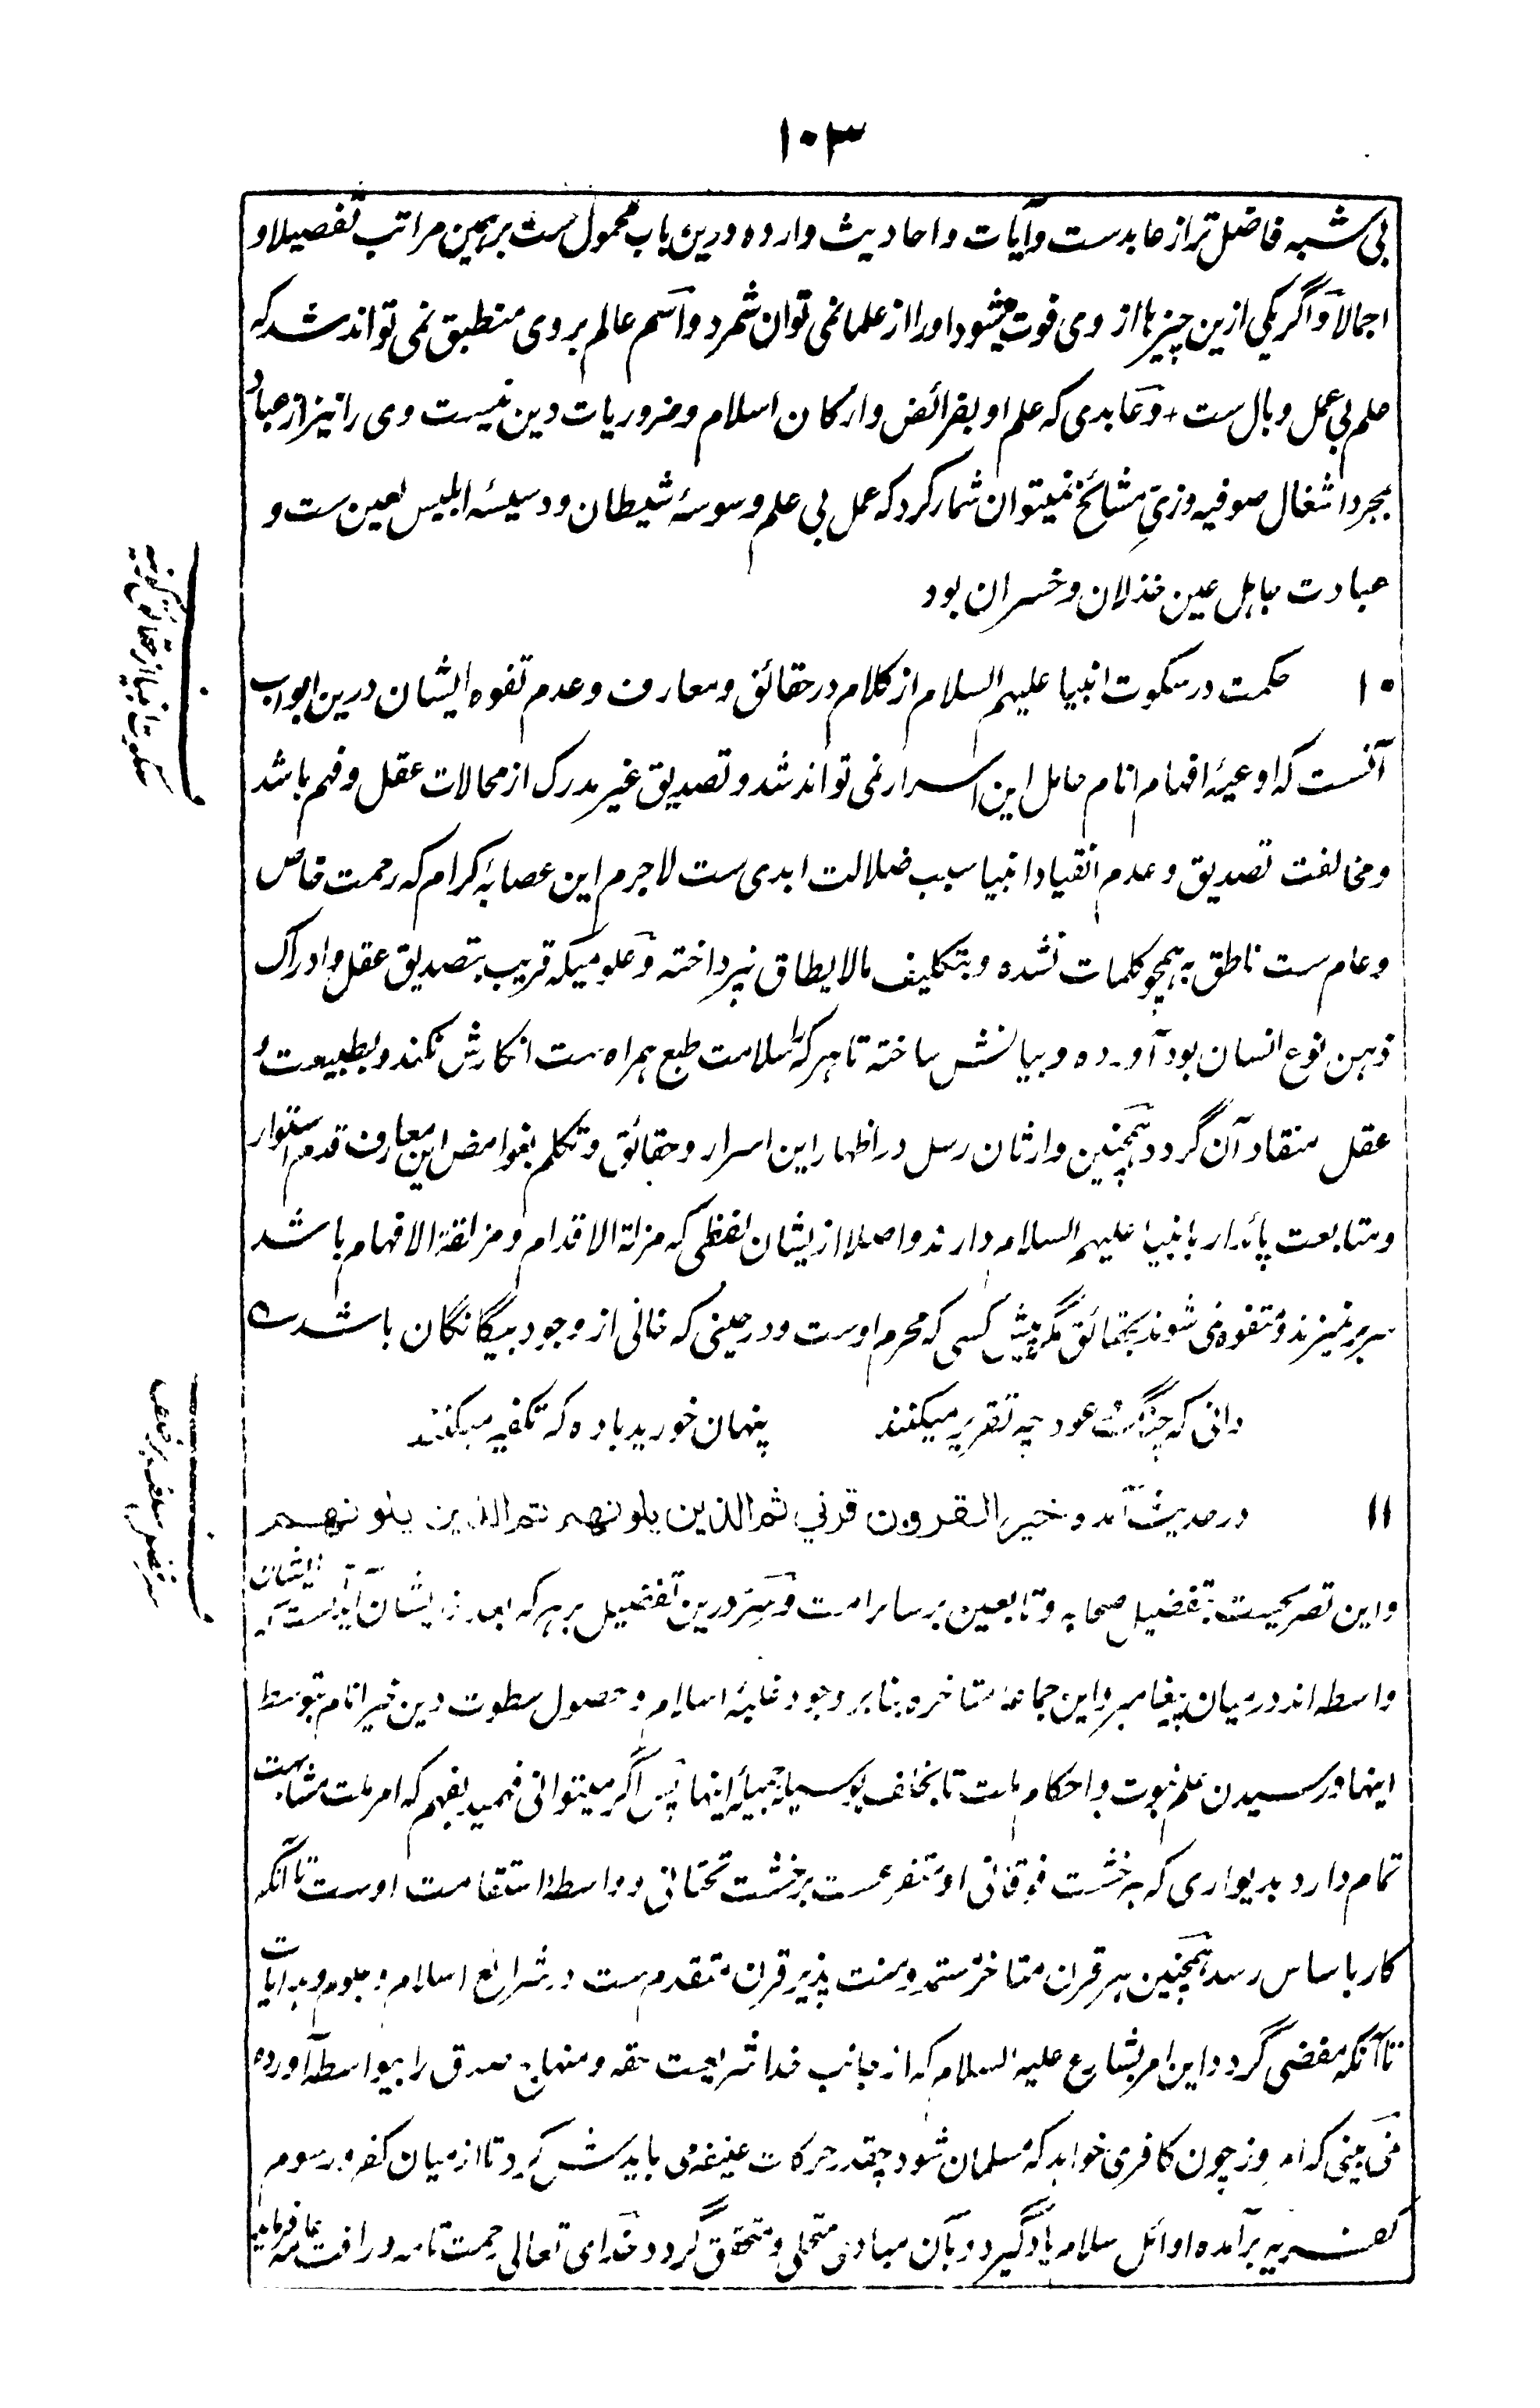 ۱۰۳
بی شبه فاضل تر از عابدست و آیات و احادیث وارده درین باب محمول ست بر همین مراتب تفصیلا و
اجمالا و اگر یکی ازین چیزها از وی فوت میشود او را از علما نمی توان شمرد و اسم عالم بر وی منطبق نمی تواند شد که
علم بی عمل وبال ست + و عابدی که علم او بفرائض و ارکان اسلام و ضروریات دین نیست وی را نیز از عباد
بمجرد اشغال صوفیه و زیِ مشائخ نمیتوان شمار کرد که عمل بی علم وسوسۀ شیطان و دسیسۀ ابلیس لعین ست و
عبادت جاهل عین خذلان و خسران بود
۱۰ حکمت در سکوت انبیا علیهم السلام از کلام در حقائق و معارف و عدم تفوه ایشان درین ابواب
آنست که اوعیۀ افهام انام حامل این اسرار نمی تواند شد و تصدیق غیر مدرک از محالات عقل و فهم باشد
و مخالفت تصدیق و عدم انقیاد انبیا سبب ضلالت ابدی ست لا جرم این عصابۀ کرام که رحمت خاص
و عام ست ناطق به همچو کلمات نشده و بتکلیف مالایطاق نپرداخته و علومیکه قریب بتصدیق عقل و ادراک
ذهن نوع انسان بود آورده و بیانش ساخته تا هر کرا سلامت طبع همراه ست انکارش نکند و بطبیعت و
عقل منقاد آن گردد همچنین وارثان رسل در اظهار این اسرار و حقائق و تکلم بغوامض این معارف قدم استوار
و متابعت پائدار بانبیا علیهم السلام دارند و اصلا ازیشان لفظی که مزلة الاقدام و مزلقة الافهام باشد
سر بر نمیزند و متفوه نمی شوند بحقائق مگر پیش کسی که محرم اوست و در حینی که خالی از وجود بیگانگان باشد ؎
دانی که چنگ و عود چه تقریر میکنند پنهان خورید باده که تکفیر میکنند
۱۱ در حدیث آمده خیر القرون قرنی ثم الذین یلونهم ثم الذین یلونهم
و این تصریحیست بتفضیل صحابه و تابعین بر سائر امت و سر درین تفضیل بر هر که بعد ازیشان آید آنست که ایشان
واسطه اند در میان پیغامبر و این جماعۀ متاخره بنابر وجود غلبۀ اسلام و حصول سطوت دین خیر انام بتوسط
اینها و رسیدن علم نبوت و احکام ملت تا بخلف بوسیلۀ جمیلۀ اینها پس اگر میتوانی فهمید بفهم که امر ملت مشابهت
تمام دارد بدیواری که هر خشت فوقانی او متفرعست بر خشت تحتانی و واسطۀ استقامت اوست تا آنکه
کار باساس رسد همچنین هر قرن متاخر مستمد و منت پذیر قرن متقدم ست در شرایع اسلام و علوم و هدایات
تا آنکه مفضی گردد این امر بشارع علیه السلام که از جانب خدا شریعت حقه و منهاج صدق را بیواسطه آورده
نمی بینی که امروز چون کافری خواهد که مسلمان شود چقدر حرکات عنیفه می بایدش کرد تا از میان کفر و رسوم
کفریه برآمده اوائل اسلام یاد گیرد و بآن مبادی متحلی و متحقق گردد خدای تعالی رحمت تامه و رافت عامه فرماید
سکوت انبیا از حقائق گوئی